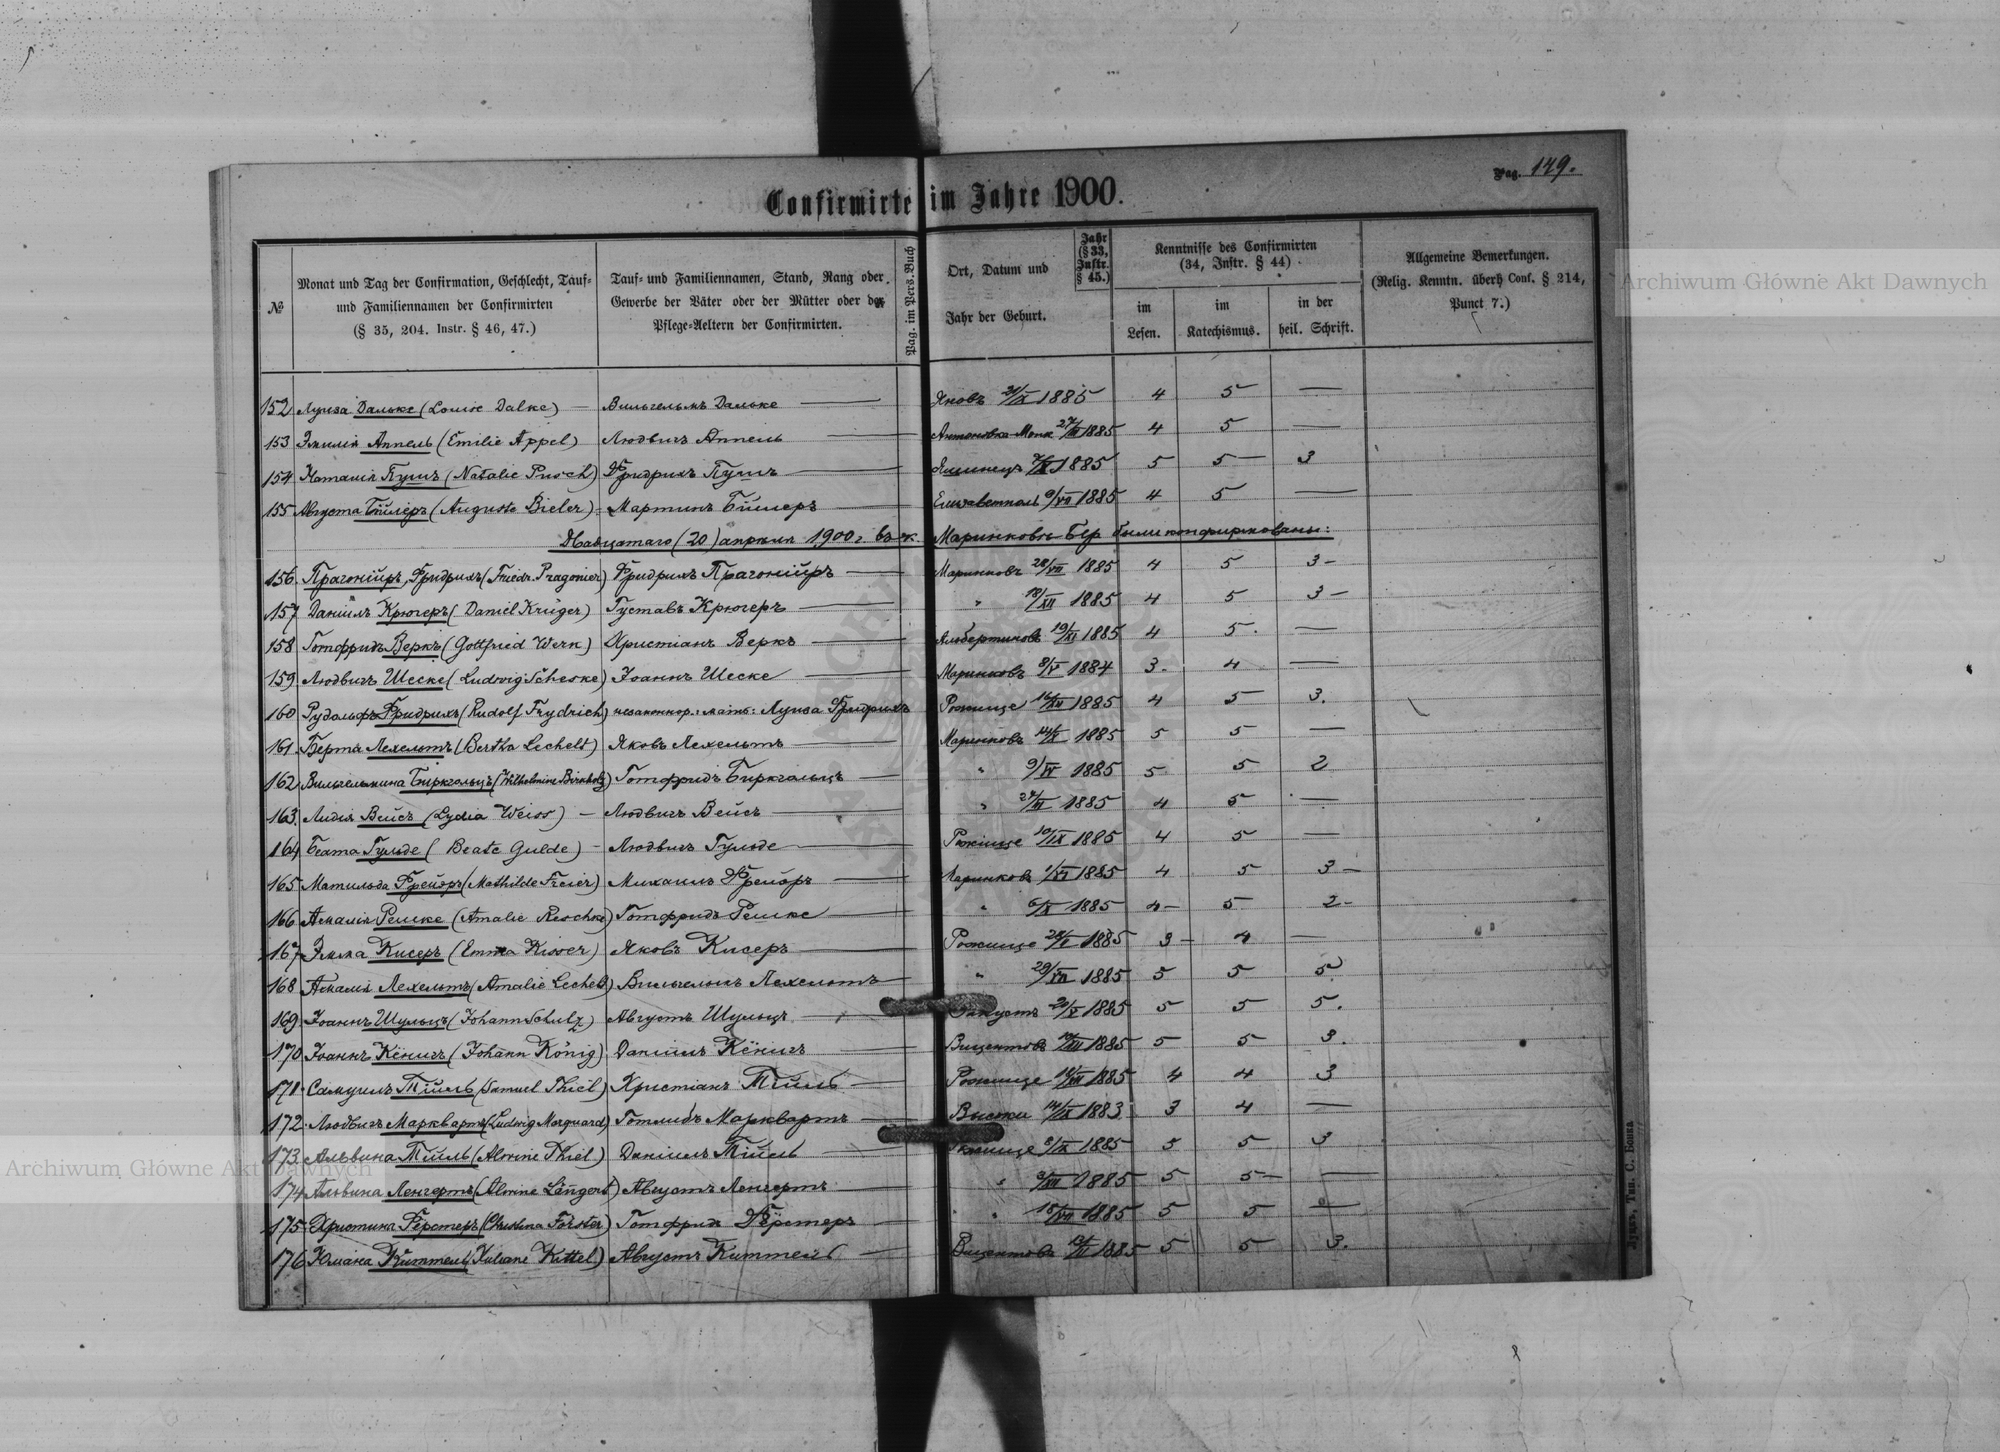 Pag. 149.
Confirmirte im Jahre 1900.
№
Monat und Tag der Confirmation, Geschlecht, Tauf- und Familiennamen der Confirmirten (§ 35, 204. Instr. § 46, 47.)
Tauf- und Familiennamen, Stand, Rang oder Gewerbe der Väter oder der Mütter oder der Pflege-Aeltern der Confirmirten.
Pag. im Pers. Buch
Ort, Datum und Jahr der Geburt.
Jahr (§ 33, Instr. § 45.)
Kenntnisse des Confirmirten (34, Instr. § 44)
im Lesen.
im Katechismus.
in der heil. Schrift.
Allgemeine Bemerkungen. (Relig. Kenntn. überh Conf. § 214, Punct 7.)
152 Луиза Дальке (Louise Dalke) — Вильгельмъ Дальке — Яновъ 1885 4 5 —
153 Эмилія Аппель (Emilie Appel) Людвигъ Аппель — Антоновка 27/III 1885 4 5 —
154 Наталія Пушъ (Natalie Pusch) Фридрихъ Пушъ — Яшинецъ 1885 5 5 — 3
155 Августа Билеръ (Auguste Bieler) = Мартинъ Билеръ Елизаветполь 9/VII 1885 4 5 —
Двадцатаго (20) апрѣля 1900 г. въ к. Маринковъ были конфирмованы:
156. Прагонійръ, Фридрихъ (Friedr. Pragonier) Фридрихъ Прагонійръ — Маринковъ 28/VII 1885 4 5 3 -
157 Даніилъ Крюгеръ (Daniel Krüger) Густавъ Крюгеръ — " 18/XII 1885 4 5 3 —
158 Готфридъ Веркъ (Gottfried Werk) Христіанъ Веркъ — Альбертиновъ 19/XI 1885 4 5. —
159. Людвигъ Шеске (Ludwig Scheske) Іоаннъ Шеске — Маринковъ 8/V 1884 3. 4 —
160 Рудольфъ Фридрихъ (Rudolf Frydrich) незаконнор.: мать: Луиза Фридрихъ Рожище 16/XII 1885 4 5 3.
161. Берта Лехельтъ (Bertha Lechelt) Яковъ Лехельтъ — Маринковъ 1885 5 5 —
162 Вильгельмина Биркгольцъ (Wilhelmine Birkholz) Готфридъ Биркгольцъ — " 9/IV 1885 5 5 2
163. Лидія Вейсъ (Lydia Weiss) — Людвигъ Вейсъ — " 1885 4 5 —
164 Беата Гульде (Beate Gulde) — Людвигъ Гульде — Рожище 10/IX 1885 4 5 —
165 Матильда Фрейэръ (Mathilde Freier) Михаилъ Фрейэръ — Маринковъ 1885 4 5 3 —
166 Амалія Решке (Amalie Reschke) Готфридъ Решке — " 1885 4 — 5 2 -
167 Эмма Кисеръ (Emma Kisser) Яковъ Кисеръ — Рожище 1885 3 — 4 —
168 Амалія Лехельтъ (Amalie Lechelt) Вильгельмъ Лехельтъ — " 1885 5 5 5
169. Іоаннъ Шульцъ (Johann Schulz) Августъ Шульцъ — 20/V 1885 5 5 5.
170 Іоаннъ Кёнигъ (Johann König) Даніилъ Кёнигъ — Вицентовъ 1885 5 5 3.
171. Самуилъ Тиль (Samuel Thiel) Христіанъ Тиль — Рожище 1885 4 4 3
172. Людвигъ Марквартъ (Ludwig Marquard) Готлибъ Марквартъ — 14/IX 1883 3 4 —
173. Альвина Тиль (Alwine Thiel) Даніилъ Тиль — Рожище 1885 5 5 3
174 Альвина Ленгертъ (Alwine Lengert) Августъ Ленгертъ — " 1885 5 5 — —
175. Христина Фёрстеръ (Christina Förster) Готфридъ Фёрстеръ — " 1885 5 5 —
176 Юліана Киттель (Juliane Kittel) Августъ Киттель — Вицентовъ 1885 5 5 3.
Луцкъ, Тип. С. Бонка
Archiwum Główne Akt Dawnych
Archiwum Główne Akt Dawnych